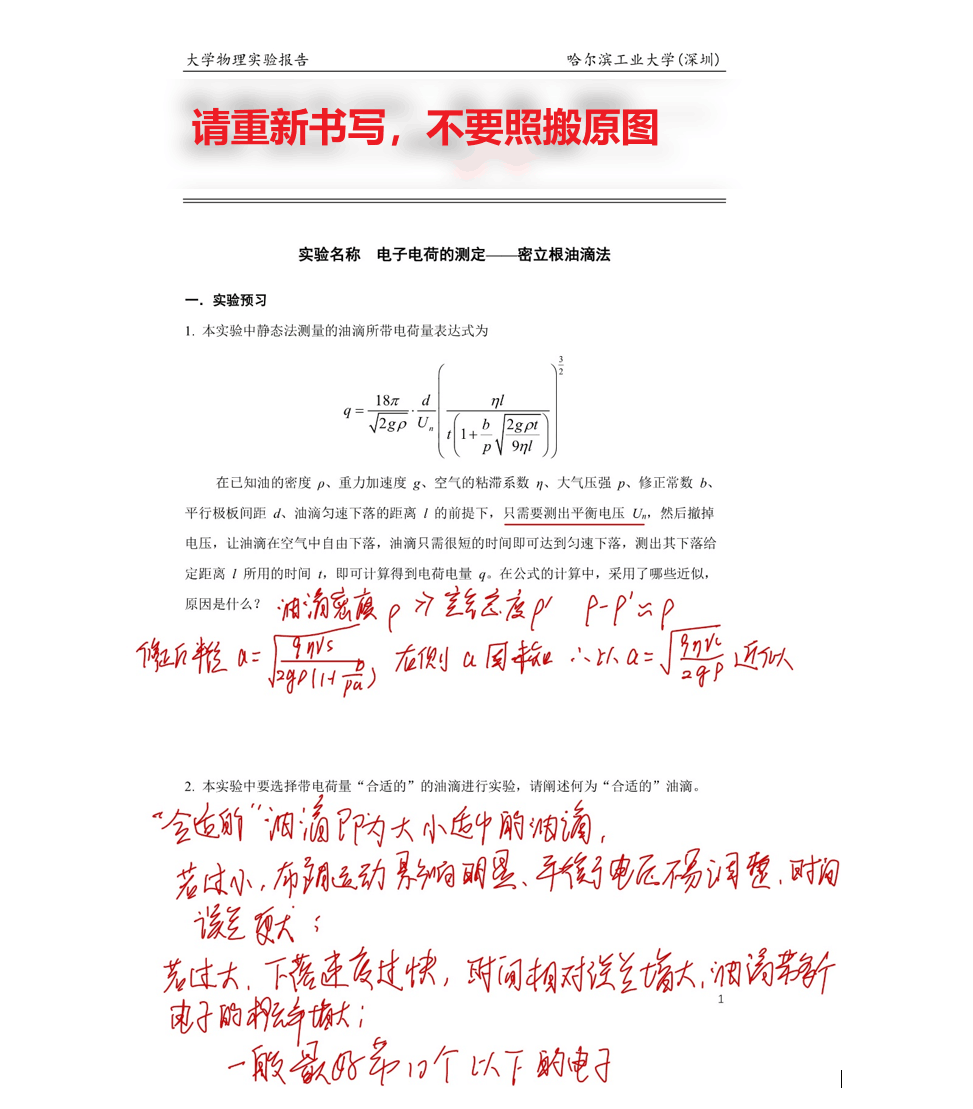 大学物理实验报告 哈尔滨工业大学(深圳)
请重新书写，不要照搬原图
实验名称 电子电荷的测定——密立根油滴法
一．实验预习
1. 本实验中静态法测量的油滴所带电荷量表达式为
q = \frac{18π}{\sqrt{2gρ}} · \frac{d}{U_n} \left( \frac{ηl}{t\left(1+\frac{b}{p}\sqrt{\frac{2gρt}{9ηl}}\right)} \right)^{\frac{3}{2}}
在已知油的密度 ρ、重力加速度 g、空气的粘滞系数 η、大气压强 p、修正常数 b、
平行极板间距 d、油滴匀速下落的距离 l 的前提下，只需要测出平衡电压 Uₙ，然后撤掉
电压，让油滴在空气中自由下落，油滴只需很短的时间即可达到匀速下落，测出其下落给
定距离 l 所用的时间 t，即可计算得到电荷电量 q。在公式的计算中，采用了哪些近似，
原因是什么？ 油滴密度 ρ ≫ 空气密度 ρ' ρ-ρ'≈ρ
修正后半径 a = \sqrt{\frac{9ηVs}{2gρ(1+\frac{b}{pa})}} 右侧 a 因未知 ∴以 a = \sqrt{\frac{9ηVs}{2gρ}} 近似
2. 本实验中要选择带电荷量“合适的”的油滴进行实验，请阐述何为“合适的”油滴。
“合适的”油滴即为大小适中的油滴，
若过小，布朗运动影响明显、平衡电压不易调整，时间
误差更大；
若过大，下落速度过快，时间相对误差增大，油滴带多个
电子的概率增大；
1
一般最好带10个以下的电子